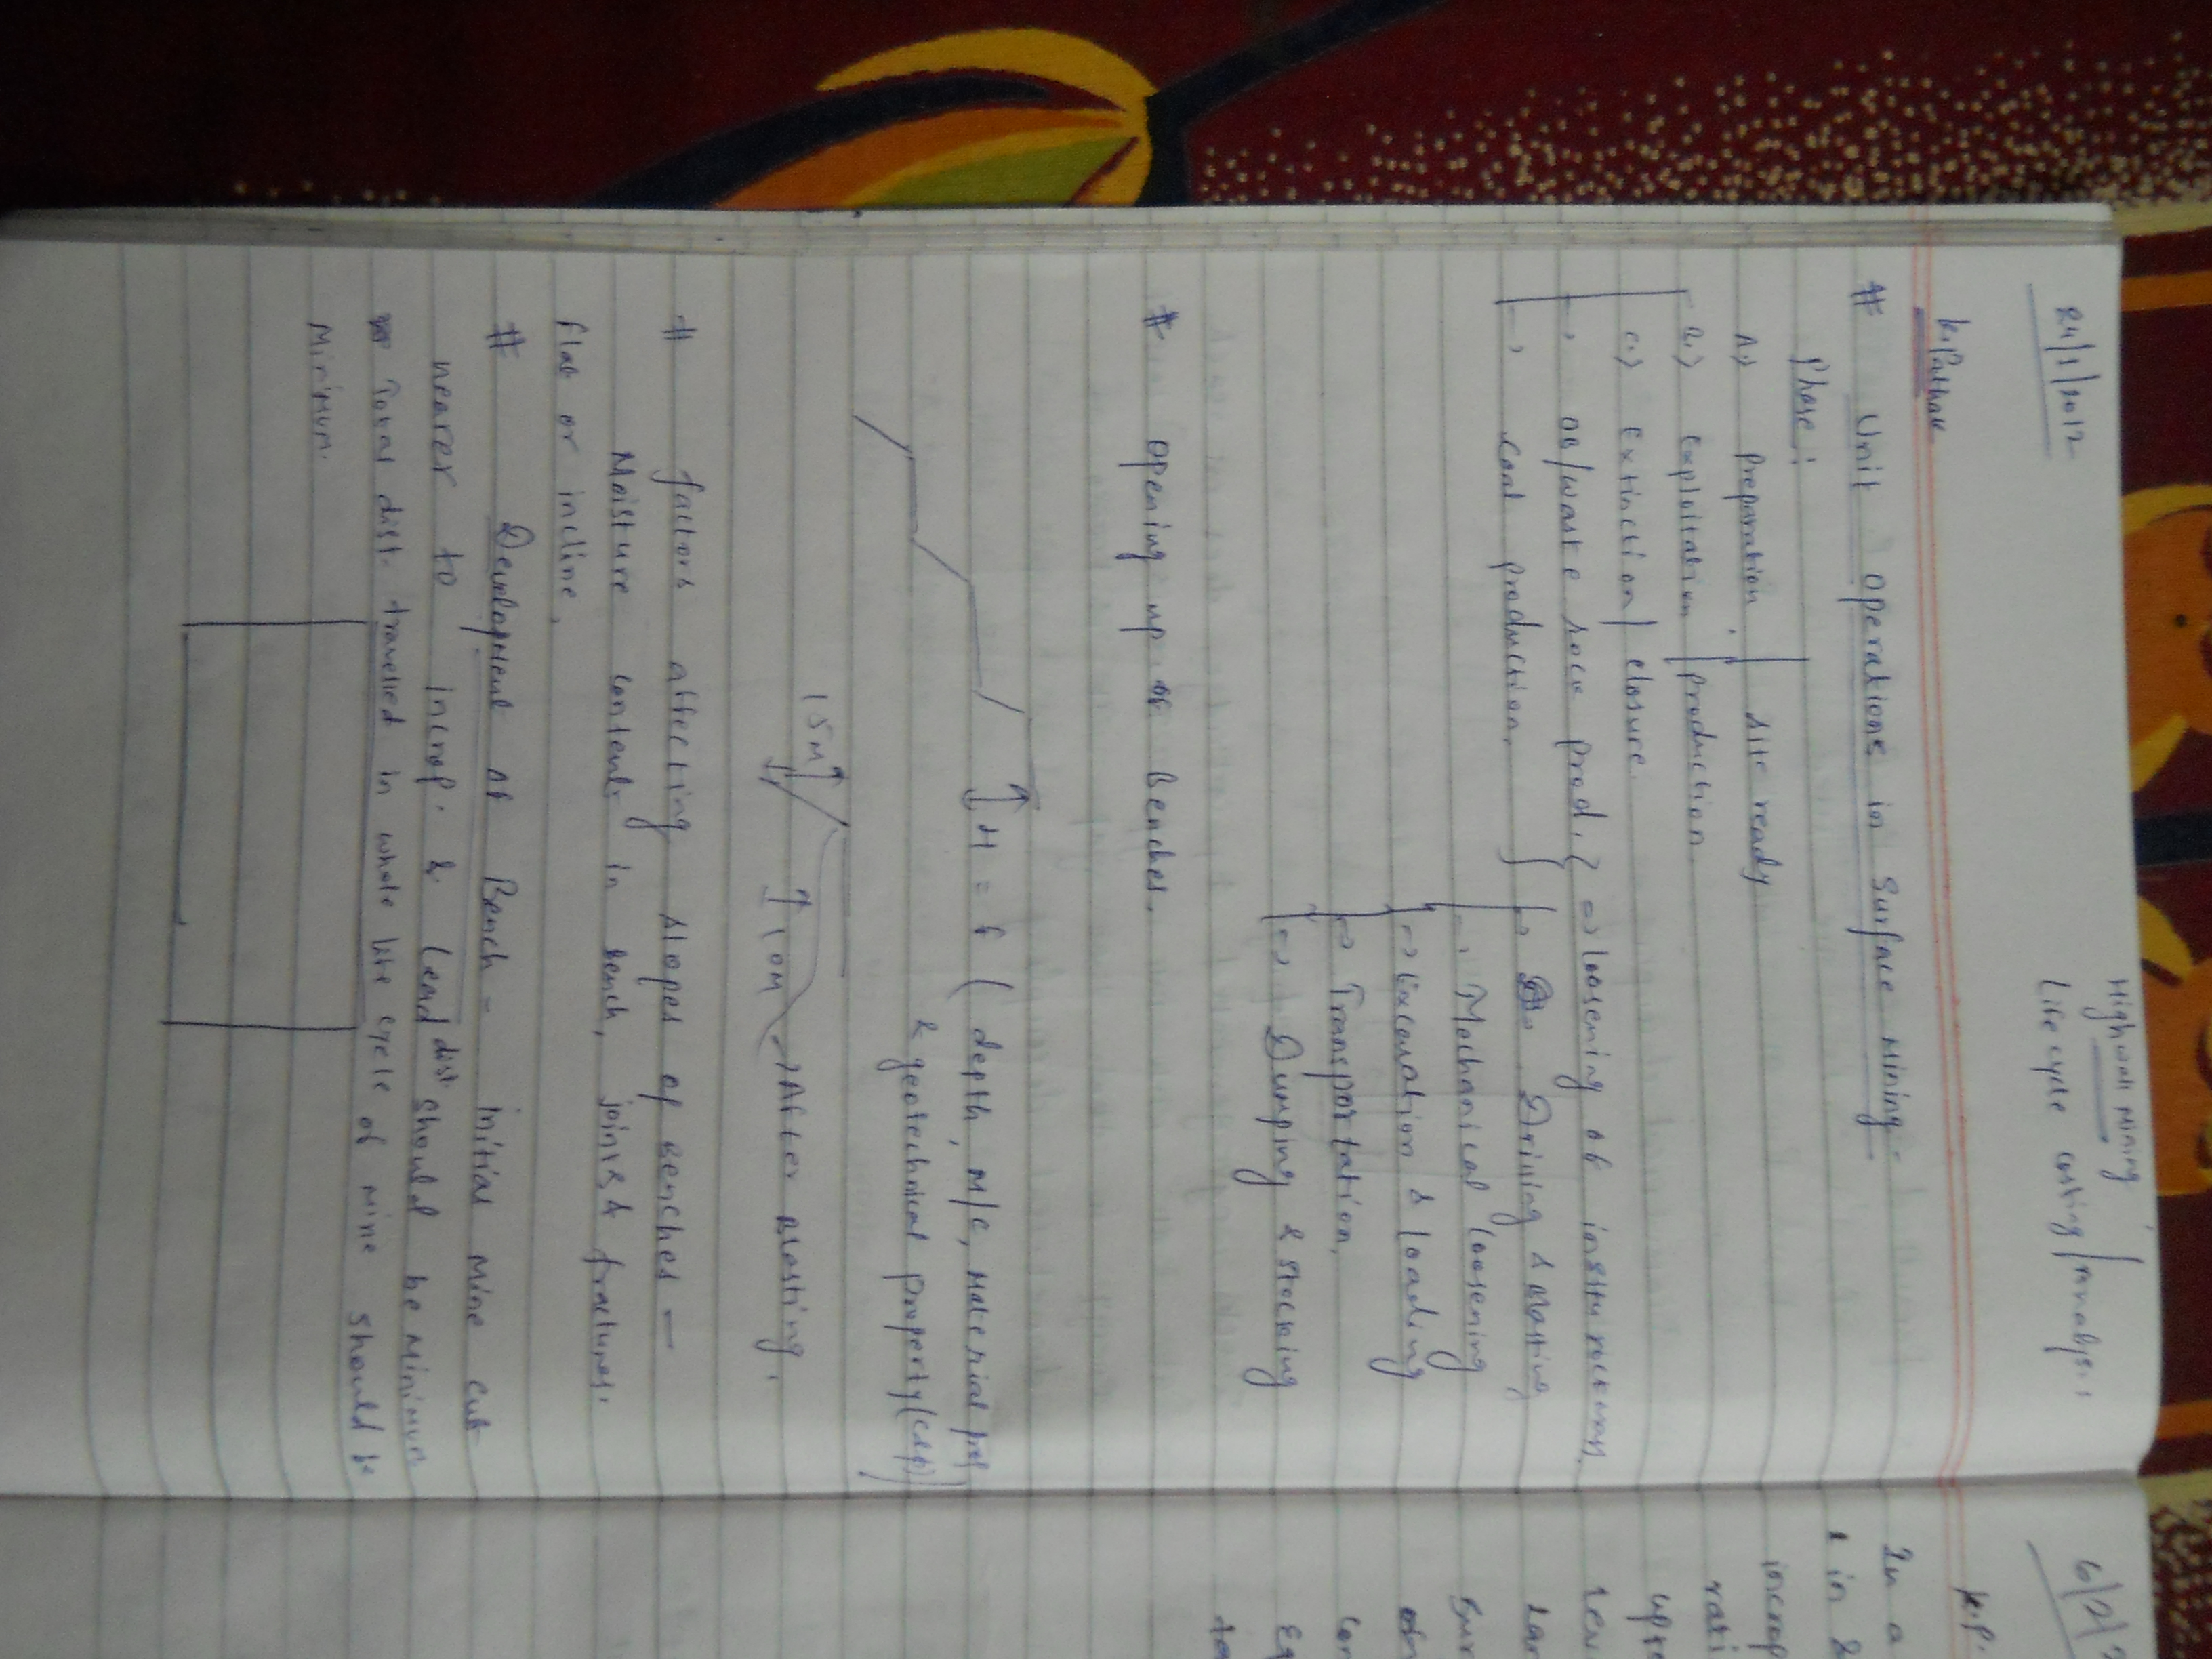 24/1/2012
Highwall Mining
Life cycle costing/analysis
K.Pathak
# Unit Operations in Surface Mining-
Phase:
A) Preparation | site ready
B) Exploitation | production
C) Extinction | closure.
→ OB/waste rock prod.} ⇒ loosening of insitu rock mass.
→ Coal production.
→ Drilling & Blasting
→ Mechanical loosening
→ Excavation & loading
→ Transportation.
→ Dumping & stocking
# Opening up of Benches.
H = f ( depth, M/c, Material
& geotechnical property
15M
10M
→ After Blasting.
# factors affecting slopes of Benches —
Moisture content in bench, joints & fractures.
flat or incline.
# Development of Bench - initial mine cut
nearer to incrop. & lead dist. should be minimum
Total dist. travelled in whole life cycle of mine should be
Minimum.
6/2/
K.P.
In a
in
incrop
rati